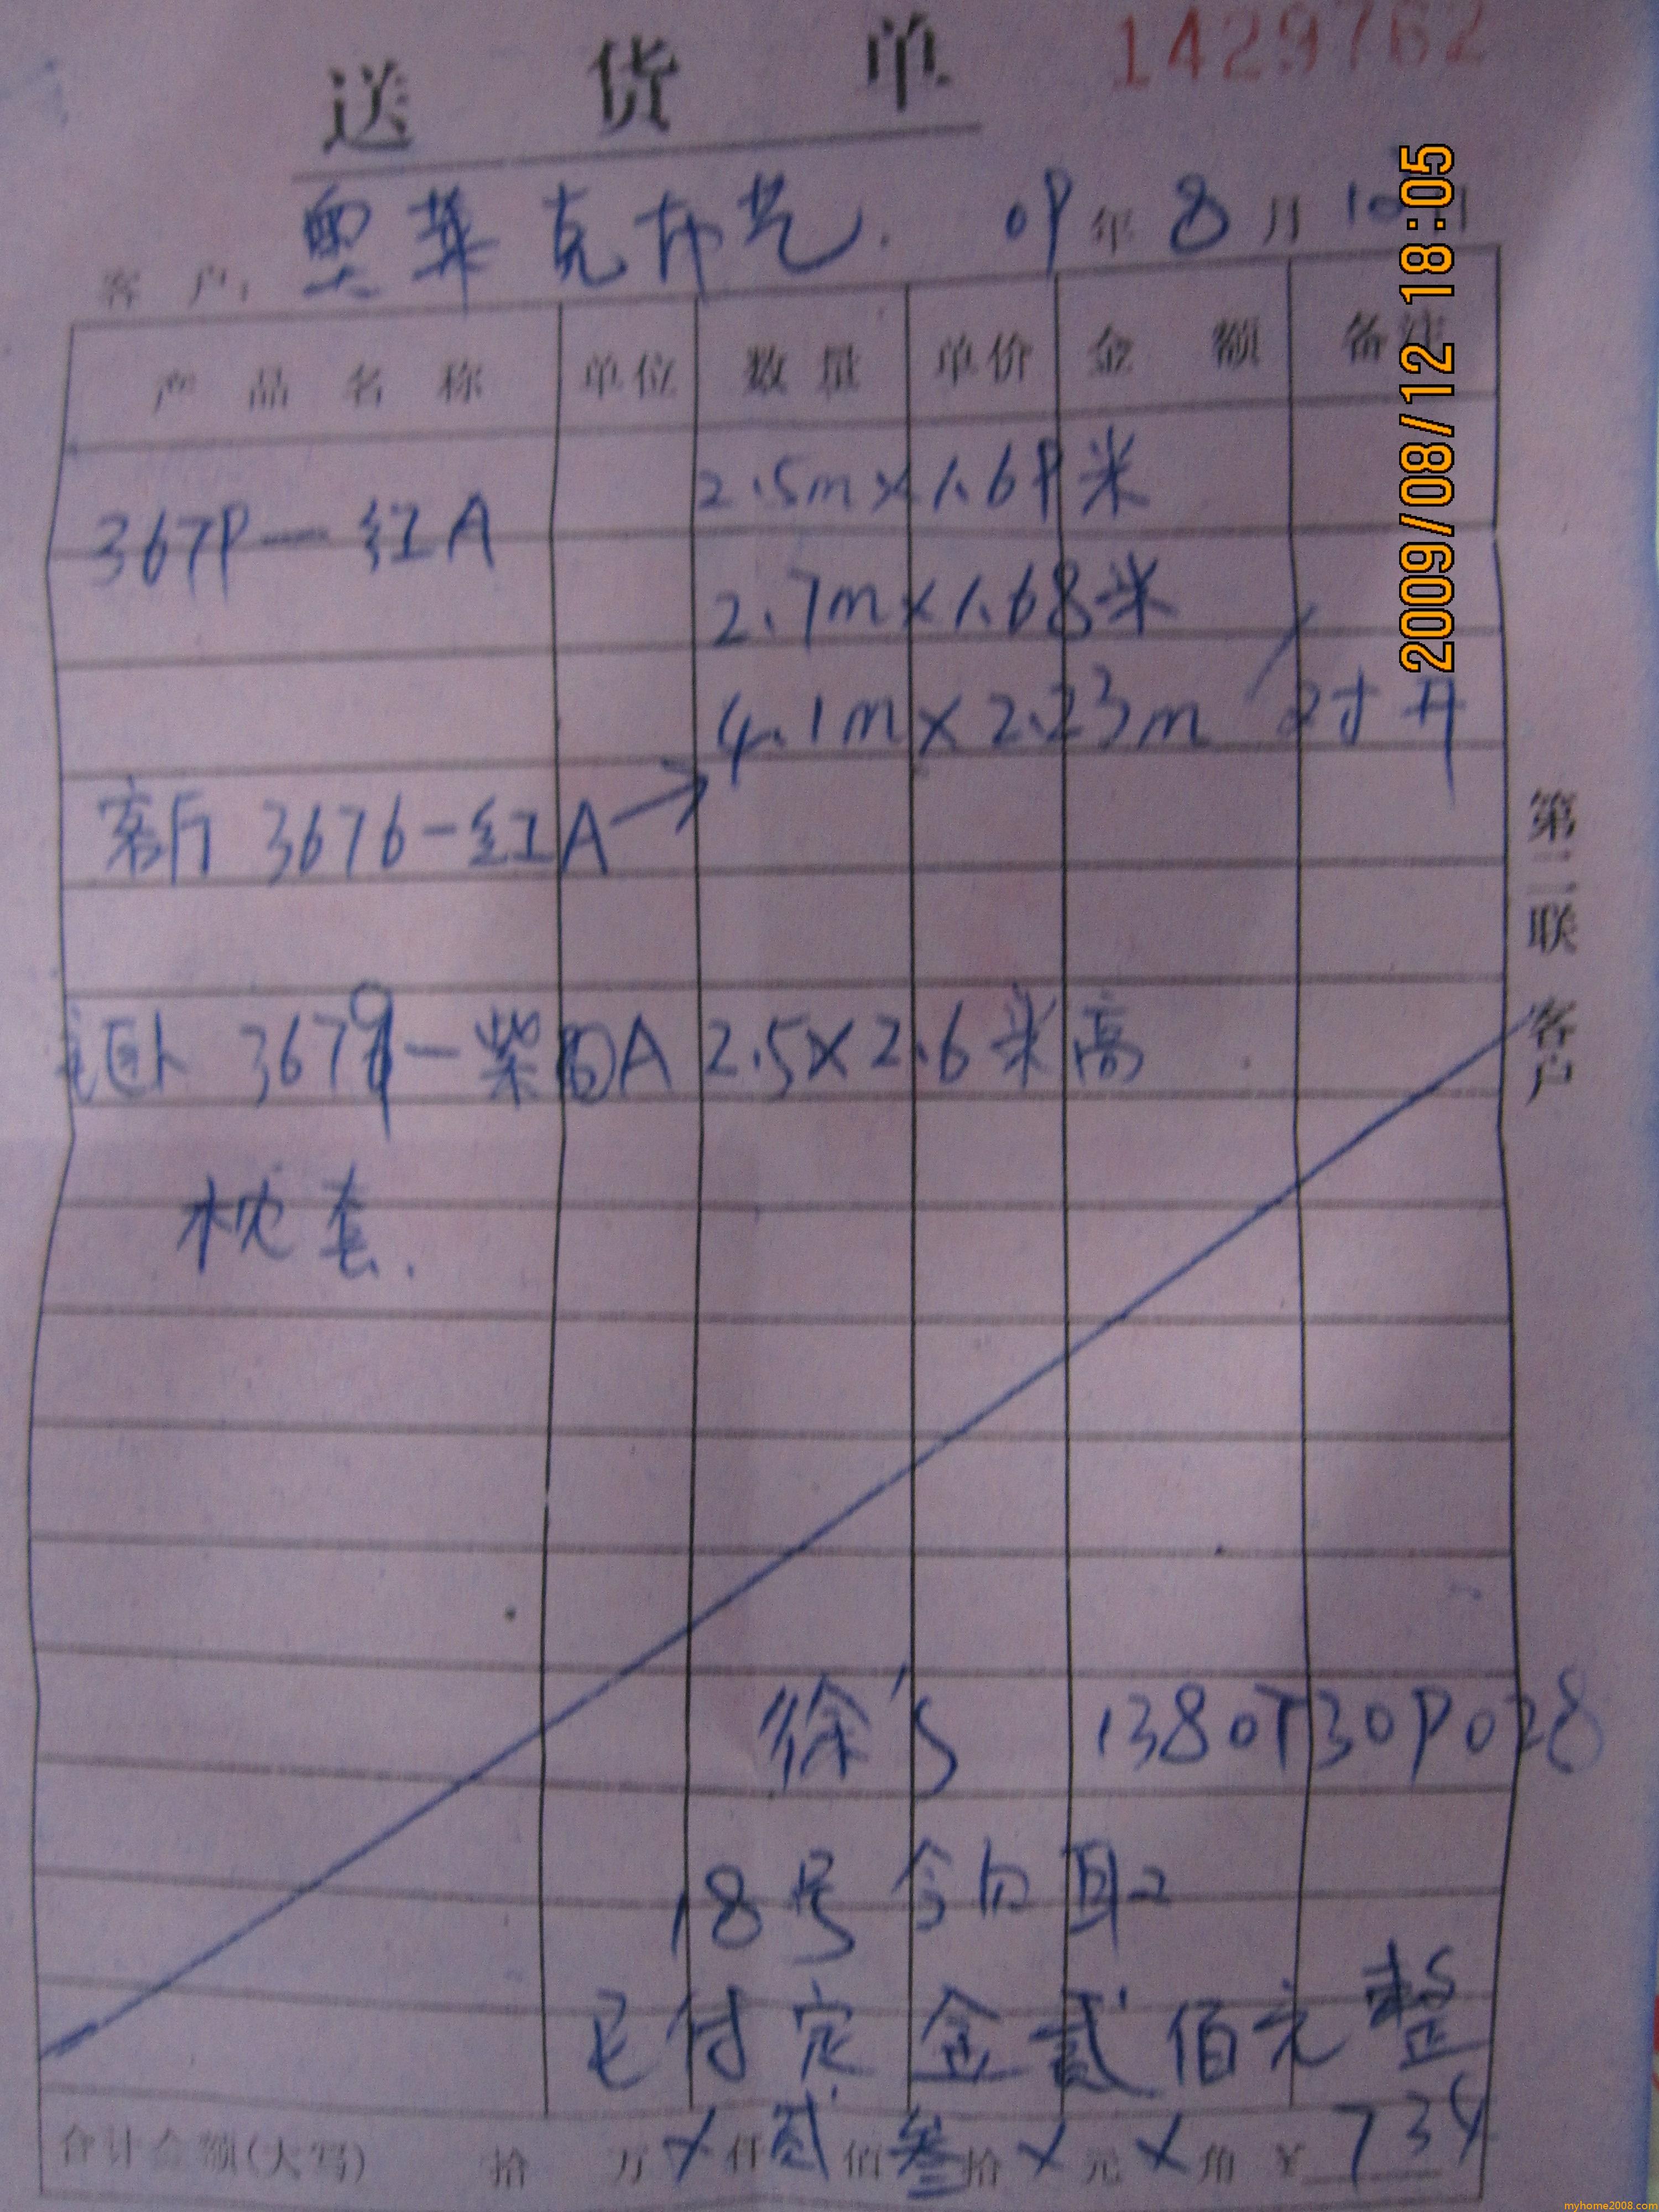 送货单 1429762
客户: 奥莱克布艺. 09年8月10日
产品名称 单位 数量 单价 金额 备注
2.5m×1.69米
3679—红A
2.7m×1.68米
4.1m×2.23m 对开
客厅 3676-红A→
卧 3679—紫 A 2.5×2.6米高
枕套.
第二联 客户
徐's 13807309028
18号 自取
已付定金贰佰元整
合计金额(大写) 拾 万 × 仟 贰 佰 叁 拾 × 元 × 角 ¥ 734
2009/08/12 18:05
myhome2008.com